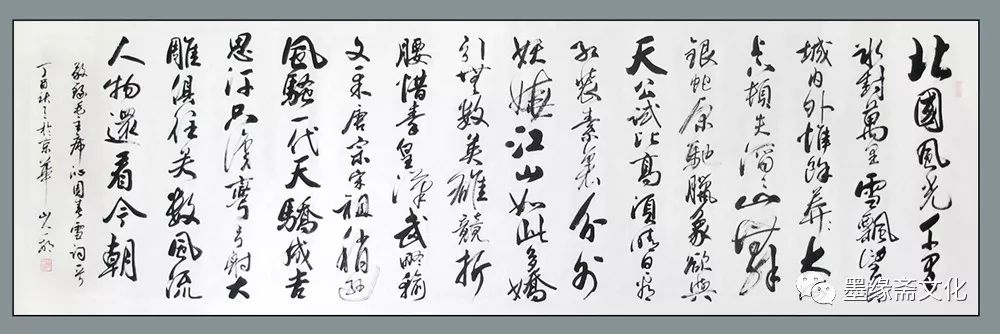 北國風光千里
冰封萬里雪飄望長
城内外惟餘莽々大河
上下頓失滔々山舞
銀蛇原馳臘象欲與
天公試比高須晴日看
紅裝素裹分外
妖嬈江山如此多嬌
引無數英雄競折
腰惜秦皇漢武略輸
文采唐宗宋祖稍遜
風騷一代天驕成吉
思汗只識彎弓射大
雕俱往矣數風流
人物還看今朝
敬録毛主席沁園春雪詞一首
丁酉秋之於京華
墨缘斋文化